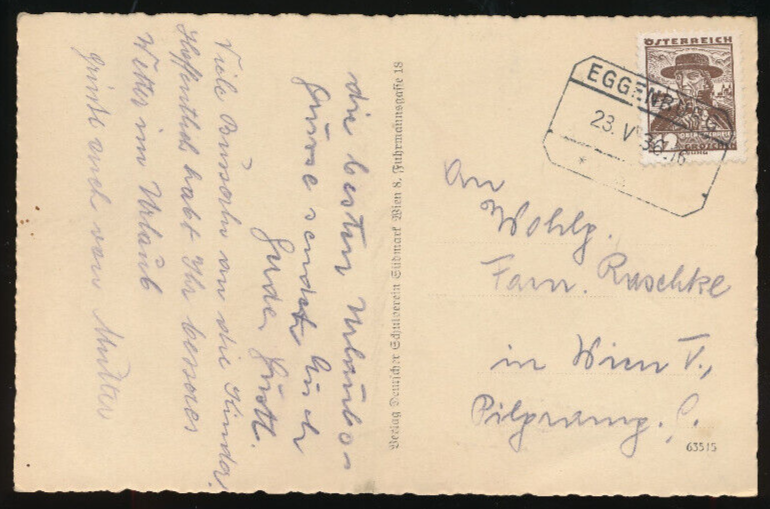 die besten Urlaubs
Grüsse sendet Euch
Viele Bussaln an die Kinder.
Hoffentlich habt Ihr besseres
Wetter im Urlaub
grüßt auch von Mutter
Verlag Deutscher Schulverein Südmark Wien 8, Fuhrmannsgasse 18
ÖSTERREICH
GROSCHEN
EGGENB
23. V
An
Wohlg.
Fam. Raschke
in Wien V.,
Pilgramg.
63515